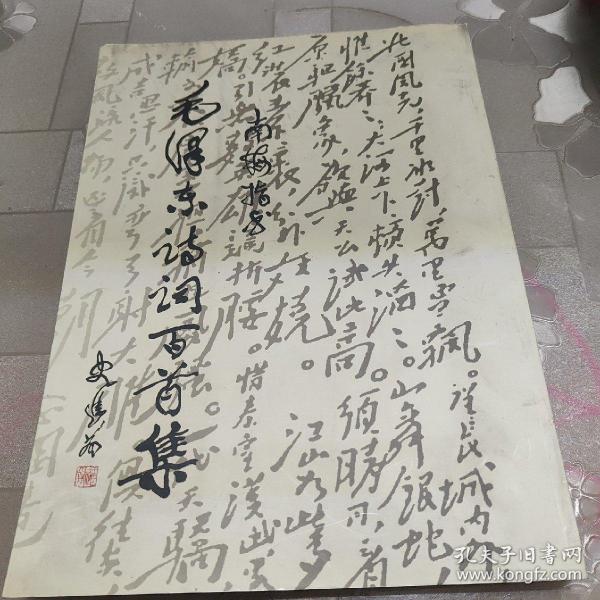 南梅指书
毛泽东诗词百首集
北国风光，千里冰封，万里雪飘。望长城内外
惟余莽々；大河上下，顿失滔々。山舞银蛇
原驰腊象，欲与天公试比高。须晴日，看
红装素裹，分外妖娆。江山如此多
娇。引无数英雄竞折腰。惜秦皇汉武
输文
天骄
成吉思汗，只识弯弓射大雕。俱往矣
数风流人物，还看今朝
孔夫子旧书网
www.kongfz.com